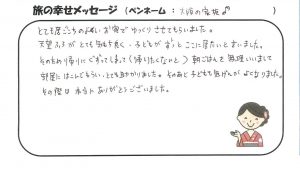 旅の幸せメッセージ (ペンネーム : 大阪の家族 )
とても居ごこちのよいお宿でゆっくりさせてもらいました。
天望ふろがとても気持ち良く、子どもがずっとここに居たいと言いました。
そのため帰りにぐずってしまって(帰りたくないと)朝ごはんを無理いいまして
部屋にはこんでもらい、とても助かりました。そのあと子どもも気げんがよくなりました。
その際は本当にありがとうございました。